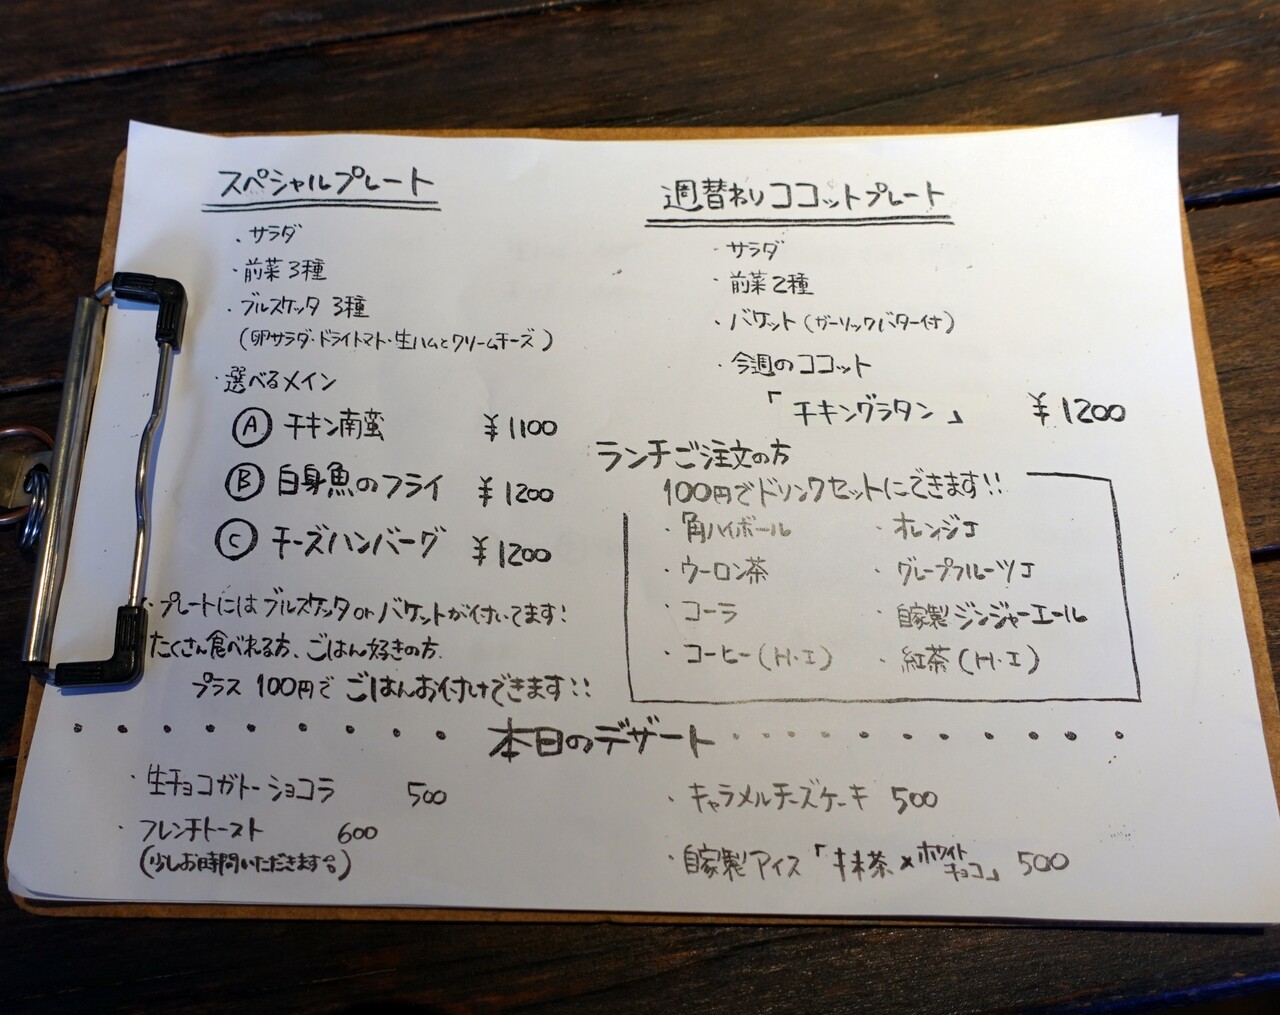 スペシャルプレート
・サラダ
・前菜3種
・ブルスケッタ 3種
(卵サラダ・ドライトマト・生ハムとクリームチーズ)
・選べるメイン
Ⓐ チキン南蛮 ¥1100
Ⓑ 白身魚のフライ ¥1200
Ⓒ チーズハンバーグ ¥1200
・プレートにはブルスケッタorバケットが付いてます!
たくさん食べれる方、ごはん好きの方、
プラス 100円で ごはんお付けできます!!
週替わりココットプレート
・サラダ
・前菜2種
・バケット(ガーリックバター付)
・今週のココット
「チキングラタン」 ¥1200
ランチご注文の方
100円でドリンクセットにできます!!
・角ハイボール ・オレンジJ
・ウーロン茶 ・グレープフルーツJ
・コーラ ・自家製ジンジャーエール
・コーヒー(H・I) ・紅茶(H・I)
本日のデザート
・生チョコガトーショコラ 500
・フレンチトースト 600
(少しお時間いただきます。)
・キャラメルチーズケーキ 500
・自家製アイス「抹茶×ホワイトチョコ」 500